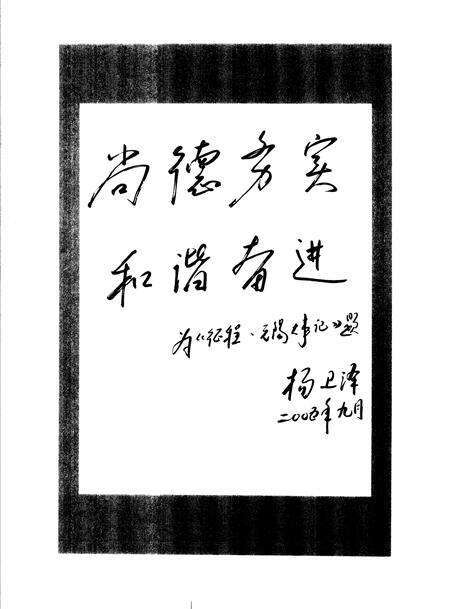 尚德务实
和谐奋进
为《征程·无锡大事记》题
杨卫泽
二〇〇五年九月